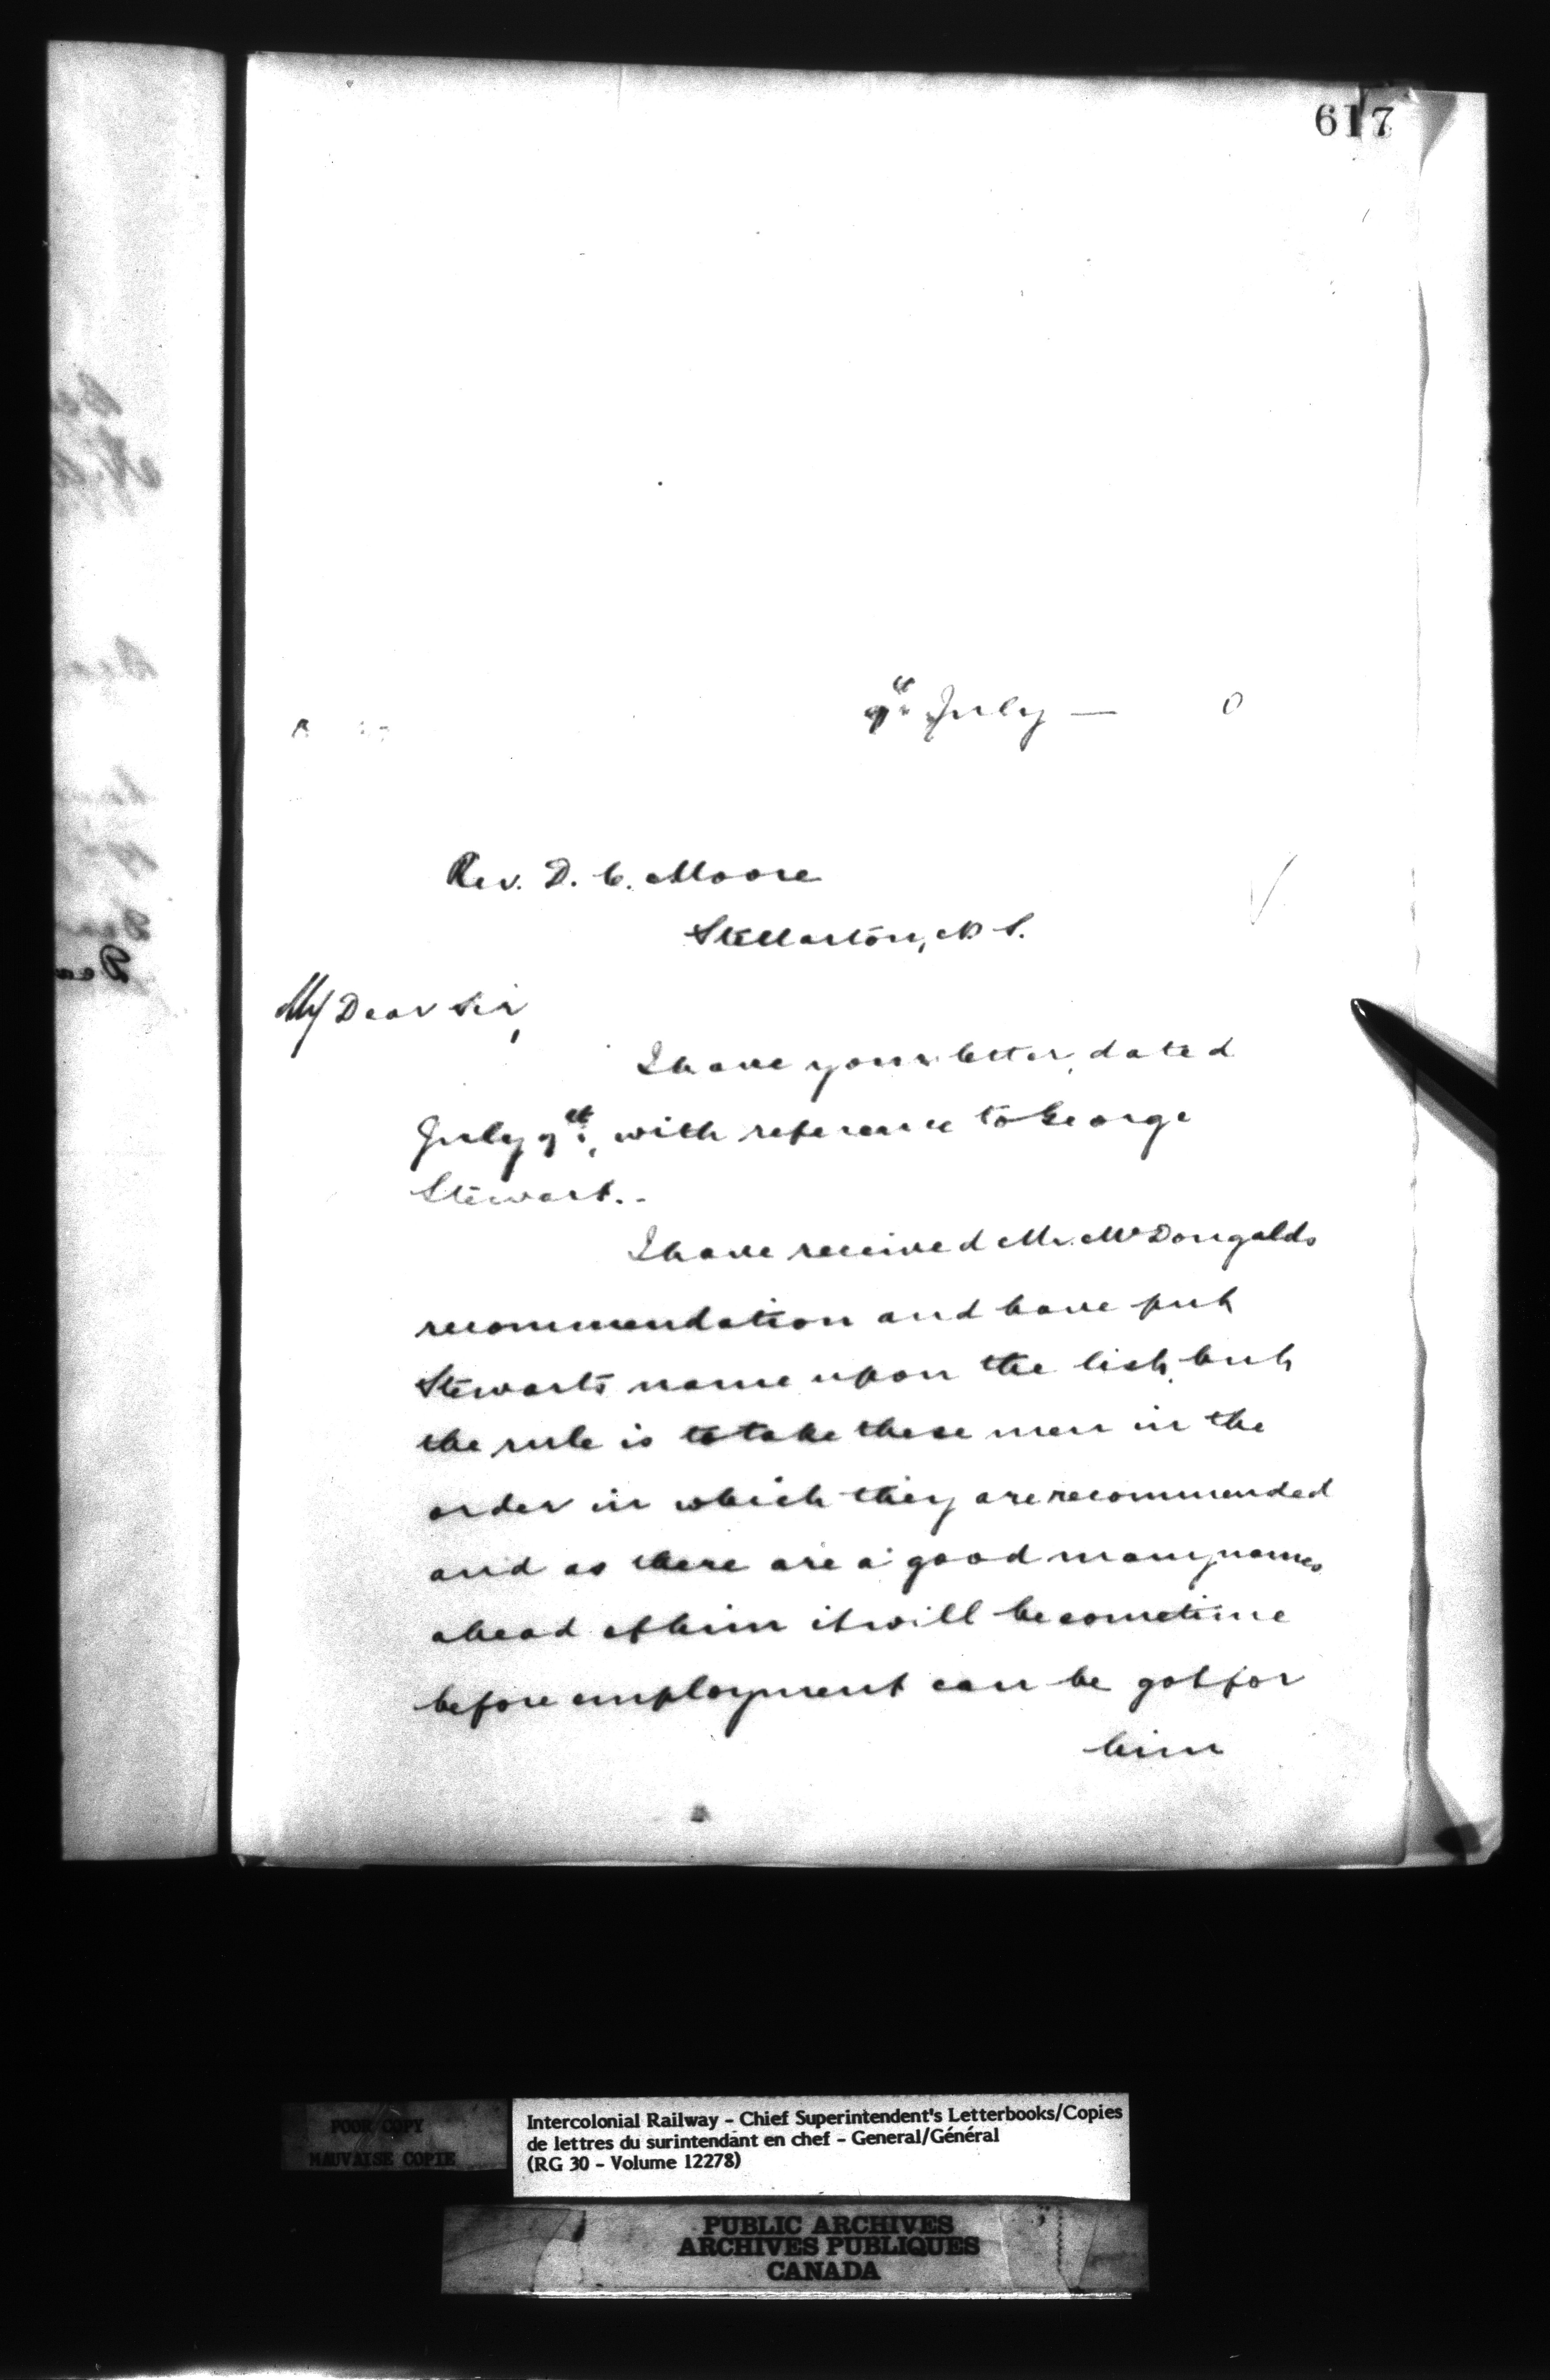 617
9th July — 0
Rev. D. C. Moore
Stellarton, N S.
My Dear Sir,
I have your letter, dated
July 9th, with reference to George
Stewart. -
I have received Mr. McDougalds
recommendation and have put
Stewarts name upon the list, but
the rule is to take these men in the
order in which they are recommended
and as there are a good many names
ahead of him it will be sometime
before employment can be got for
him
POOR COPY
MAUVAISE COPIE
Intercolonial Railway - Chief Superintendent's Letterbooks/Copies
de lettres du surintendant en chef - General/Général
(RG 30 - Volume 12278)
PUBLIC ARCHIVES
ARCHIVES PUBLIQUES
CANADA